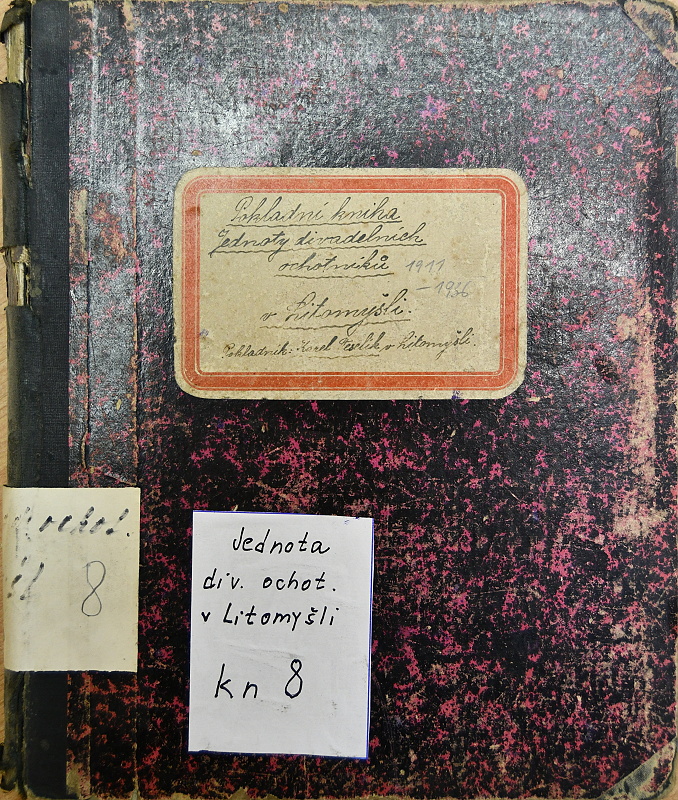 Pokladní kniha
Jednoty divadelních
ochotníků 1911
– 1936
v Litomyšli.
Pokladník: Karel v Litomyšli.
ochot.
8
Jednota
div. ochot.
v Litomyšli
kn 8